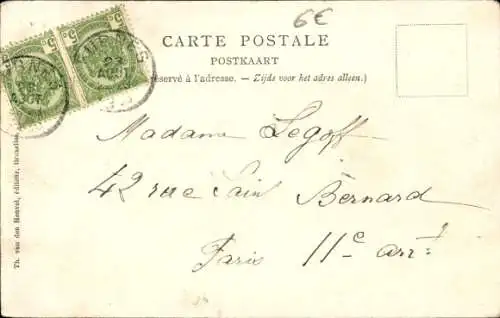 6€
CARTE POSTALE
POSTKAART
réservé à l'adresse. — Zijde voor het adres alleen.)
Madame Legoff
42 rue Sain Bernard
Paris 11e arrt
Th. van den Heuvel, éditeur, Bruxelles
5
5
23